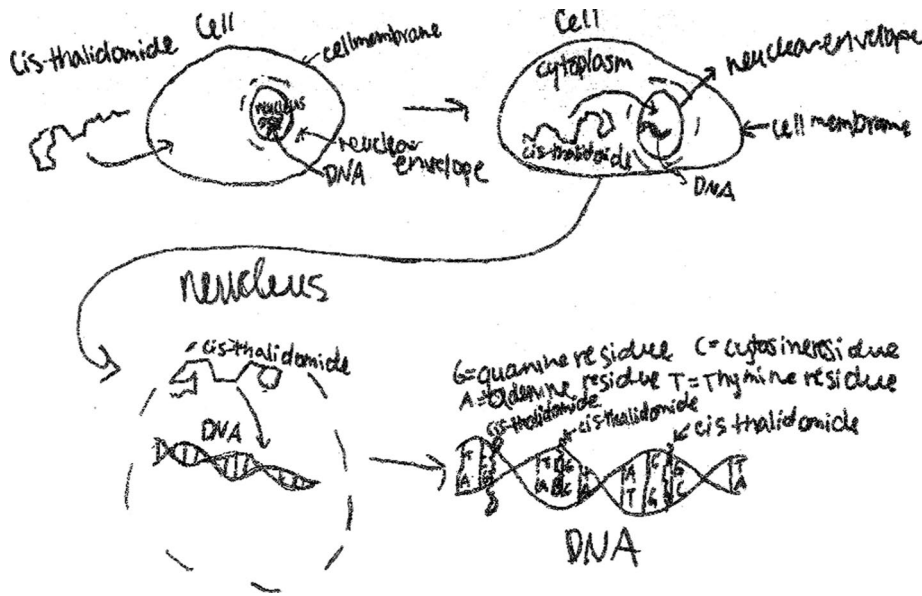 Cis-thalidomide
Cell
cell membrane
neucleus
neuclear
envelope
DNA
Cell
cytoplasm
neuclear envelope
cell membrane
cis-thalidoide
DNA
neucleus
cis-thalidomide
DNA
G=quamine residue C=cytosine residue
A=adenine residue T=Thymine residue
cis-thalidomide
cis-thalidomide
cis-thalidomide
DNA